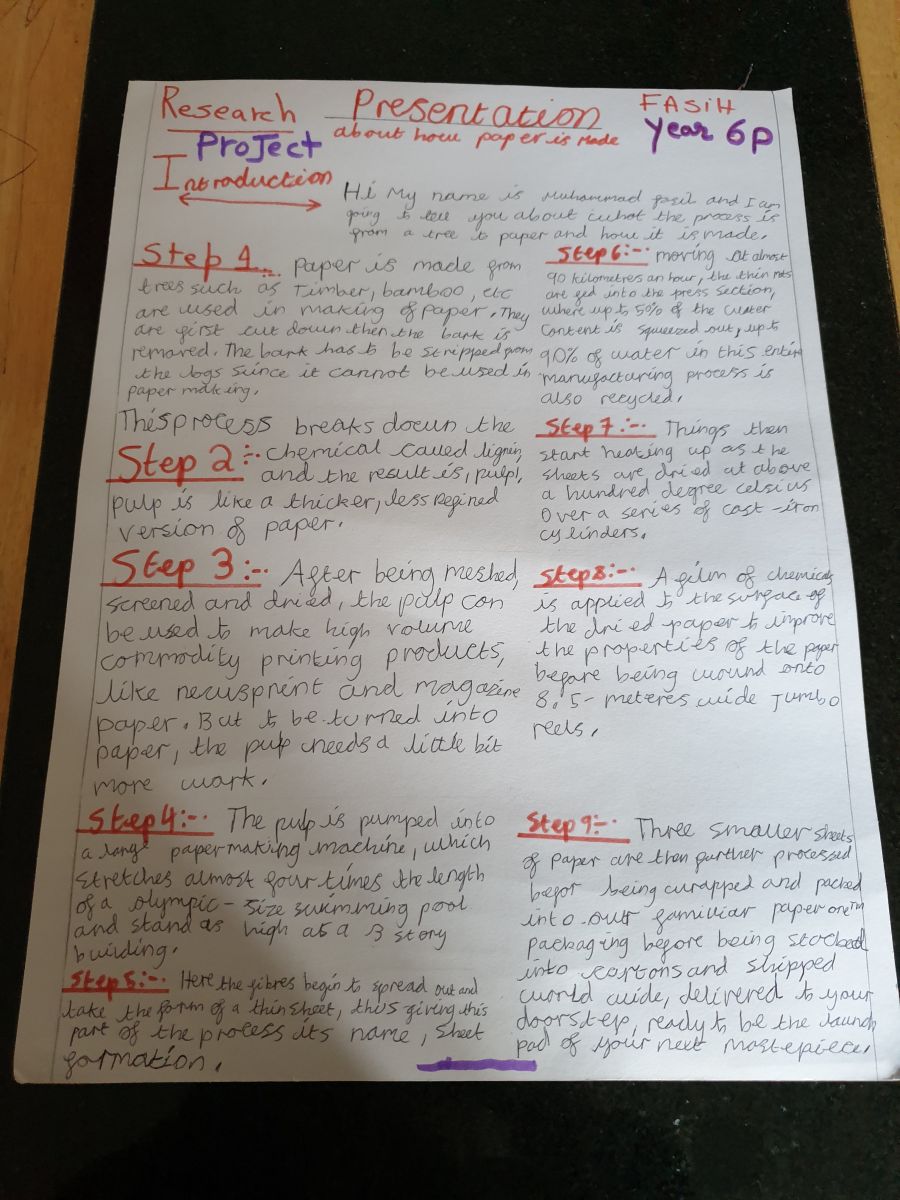 Research
Project
Presentation
about how paper is Made
FASiH
Year 6p
Introduction
Hi My name is Muhammad fasih and I am
going to tell you about what the process is
from a tree to paper and how it is made.
Step 1 :-. Paper is made from
trees such as Timber, bamboo, etc
are used in making of paper. They
are first cut down then the bark is
removed. The bark has to be stripped from
the logs since it cannot be used in
paper making.
This process breaks down the
Step 2:-. chemical called lignin,
and the result is, pulp!,
pulp is like a thicker, less refined
version of paper.
Step 3:-. After being meshed,
screened and dried, the pulp can
be used to make high volume
commodity printing products,
like newsprint and magazine
paper. But to be turned into
paper, the pulp needs a little bit
more work.
Step 4:-. The pulp is pumped into
a large papermaking machine, which
stretches almost four times the length
of a olympic-size swimming pool
and stand as high as a 3 story
building.
Step 5:-. Here the fibres begin to spread out and
take the form of a thin sheet, thus giving this
part of the process its name, sheet
formation.
Step 6:-. moving at almost
90 kilometres an hour, the thin
are fed into the press section,
where up to 50% of the water
content is squeezed out, up to
90% of water in this entire
manufacturing process is
also recycled.
Step 7:-. Things then
start heating up as the
sheets are dried at above
a hundred degree celsius
over a series of cast-iron
cylinders.
Step 8:-. A film of chemicals
is applied to the surface of
the dried paper to improve
the properties of the paper
before being wound onto
8.5-meteres wide Jumbo
reels.
Step 9:-. Three smaller sheets
of paper are then further processed
befor being wrapped and packed
into our familiar paperone™
packaging before being stocked
into cartons and shipped
world wide, delivered to your
doorstep, ready to be the launch
pad of your next mastepiece.